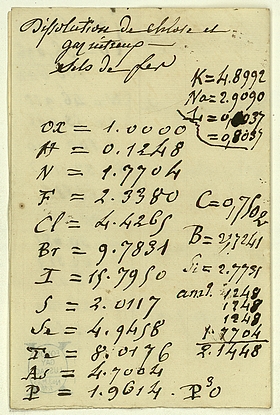 Dissolution de chlore et
sels de fer
K = 4.8992
Na = 2.9090
= 0,8037
OX = 1.0000
H = 0.1248
N = 1.7704
F = 2.3380
C = 0,7502
Cl = 4.4265
B = 2,7241
Br = 9.7831
Si = 2.7731
I = 15.7950
aml. 1248
1248
S = 2.0117
1248
Se = 4.9458
1.7704
2.1448
Te = 8.0176
As = 4.7004
P = 1.9614. P³O